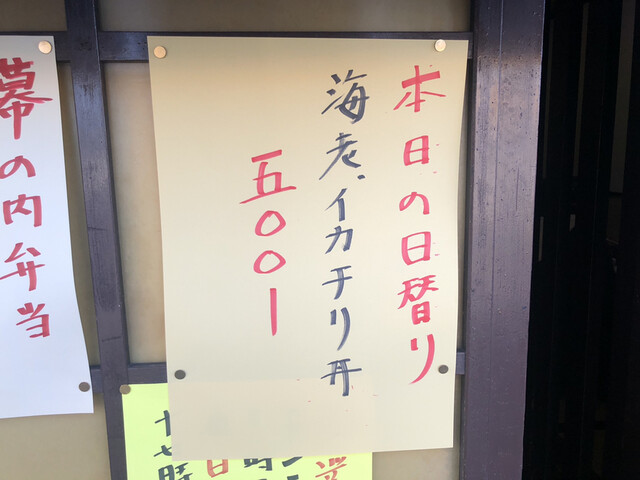 本日の日替り
海老、イカチリ丼
五〇〇ー
幕の内弁当
十七時
日
時